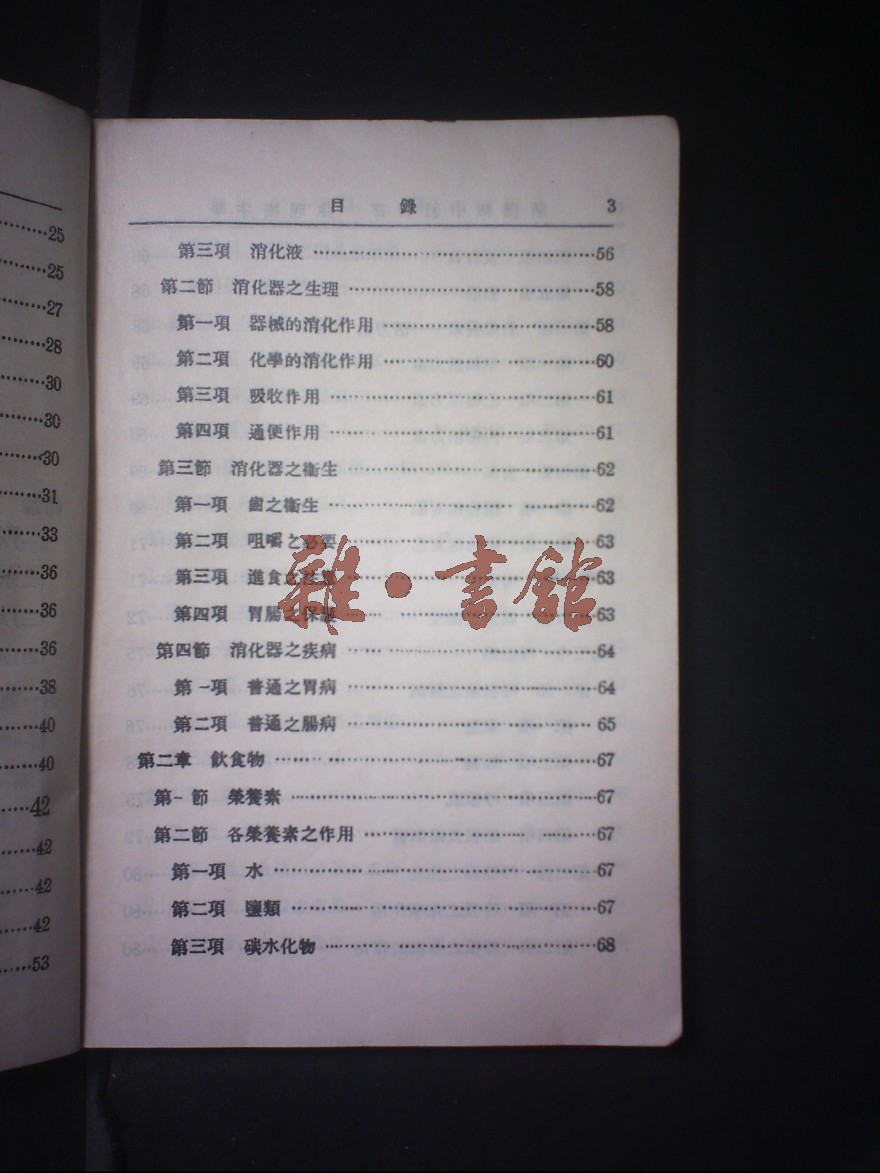 25
25
27
28
30
30
30
31
33
36
36
36
38
40
40
42
42
42
42
53
目 錄 3
第三項 消化液 56
第二節 消化器之生理 58
第一項 器械的消化作用 58
第二項 化學的消化作用 60
第三項 吸收作用 61
第四項 通便作用 61
第三節 消化器之衞生 62
第一項 齒之衞生 62
第二項 咀嚼之必要 63
第三項 進食之 63
第四項 胃腸之保護 63
第四節 消化器之疾病 64
第一項 普通之胃病 64
第二項 普通之腸病 65
第二章 飲食物 67
第一節 榮養素 67
第二節 各榮養素之作用 67
第一項 水 67
第二項 鹽類 67
第三項 碳水化物 68
雜·書館